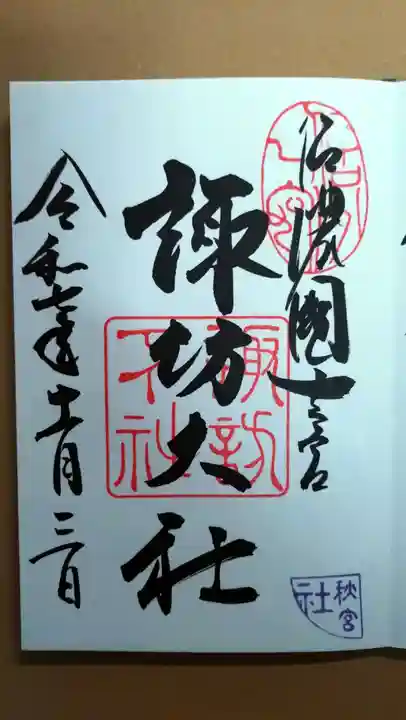 信濃國一之宮
諏訪大社
令和七年十一月三日
諏訪
下社
秋宮
社